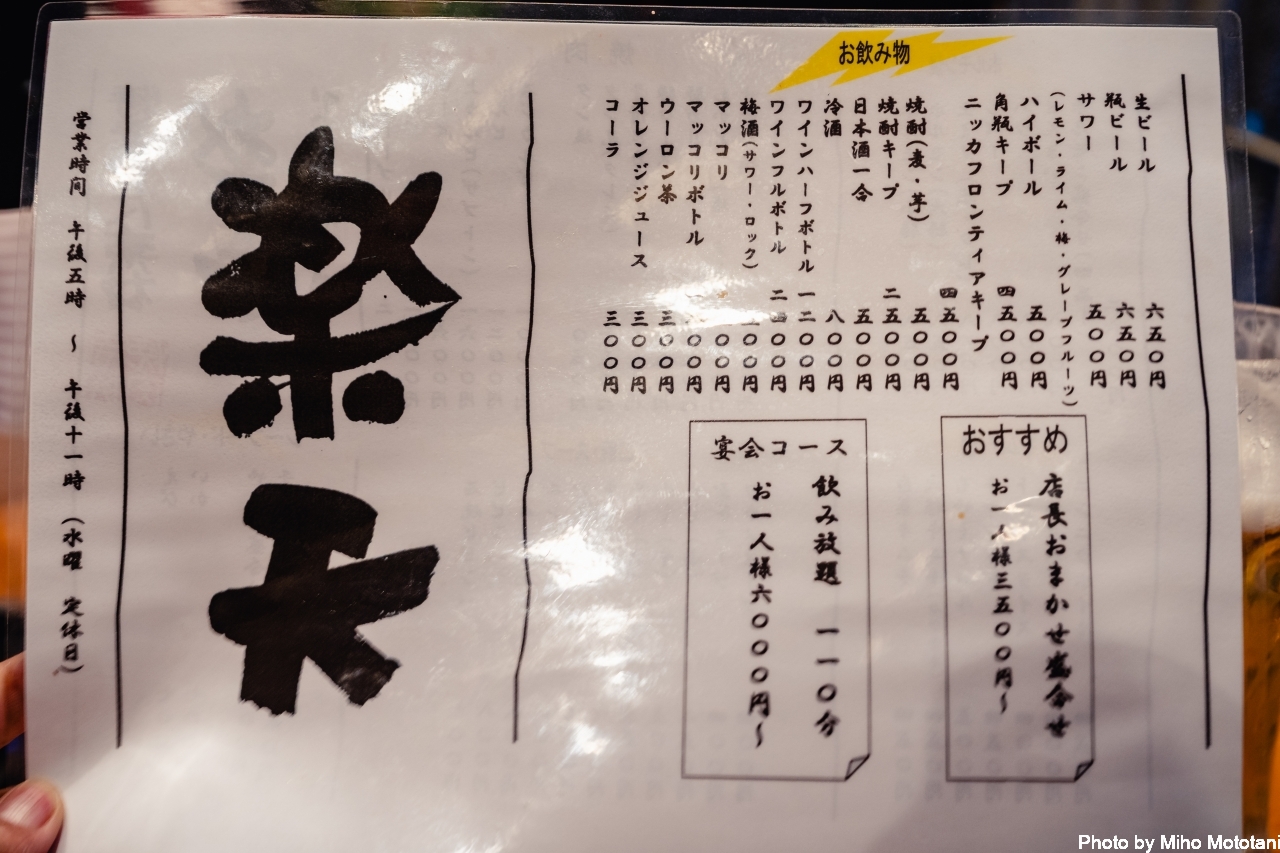 お飲み物
生ビール 六五〇円
瓶ビール 六五〇円
サワー 五〇〇円
(レモン・ライム・梅・グレープフルーツ)
ハイボール 五〇〇円
角瓶キープ 四五〇〇円
ニッカフロンティアキープ 四五〇〇円
焼酎(麦・芋) 五〇〇円
焼酎キープ 二五〇〇円
日本酒一合 五〇〇円
冷酒 八〇〇円
ワインハーフボトル 一二〇〇円
ワインフルボトル 二四〇〇円
梅酒(サワー・ロック)
マッコリ
マッコリボトル
ウーロン茶 三〇〇円
オレンジジュース 三〇〇円
コーラ 三〇〇円
おすすめ
店長おまかせ盛合せ
お一人様三五〇〇円〜
宴会コース
飲み放題 一一〇分
お一人様六〇〇〇円〜
楽天
営業時間 午後五時 〜 午後十一時 (水曜 定休日)
Photo by Miho Mototani